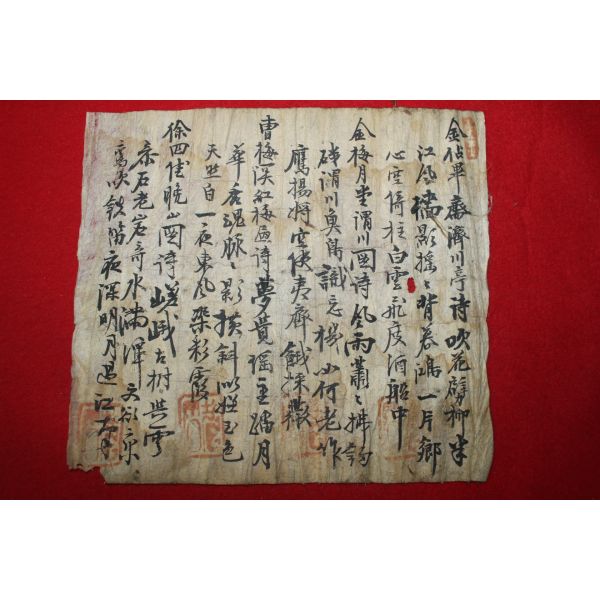 金佔畢齋濟川亭詩吹花劈柳半
江風檣影搖〻背暮鴻一片鄉
心空倚柱白雲飛度酒船中
金梅月堂渭川圖詩風雨蕭〻拂釣
磯渭川魚鳥識忘機如何老作
鷹揚將空使夷齊餓採薇
曹梅溪紅梅画詩夢覺瑤臺踏月
華香魂脉〻影橫斜似嫌玉色
天然白一夜東風染彩霞
徐四佳晚山圖詩嵯峨古樹與雲
泰石老岩奇水滿
鸞吹鐵笛夜深明月過江